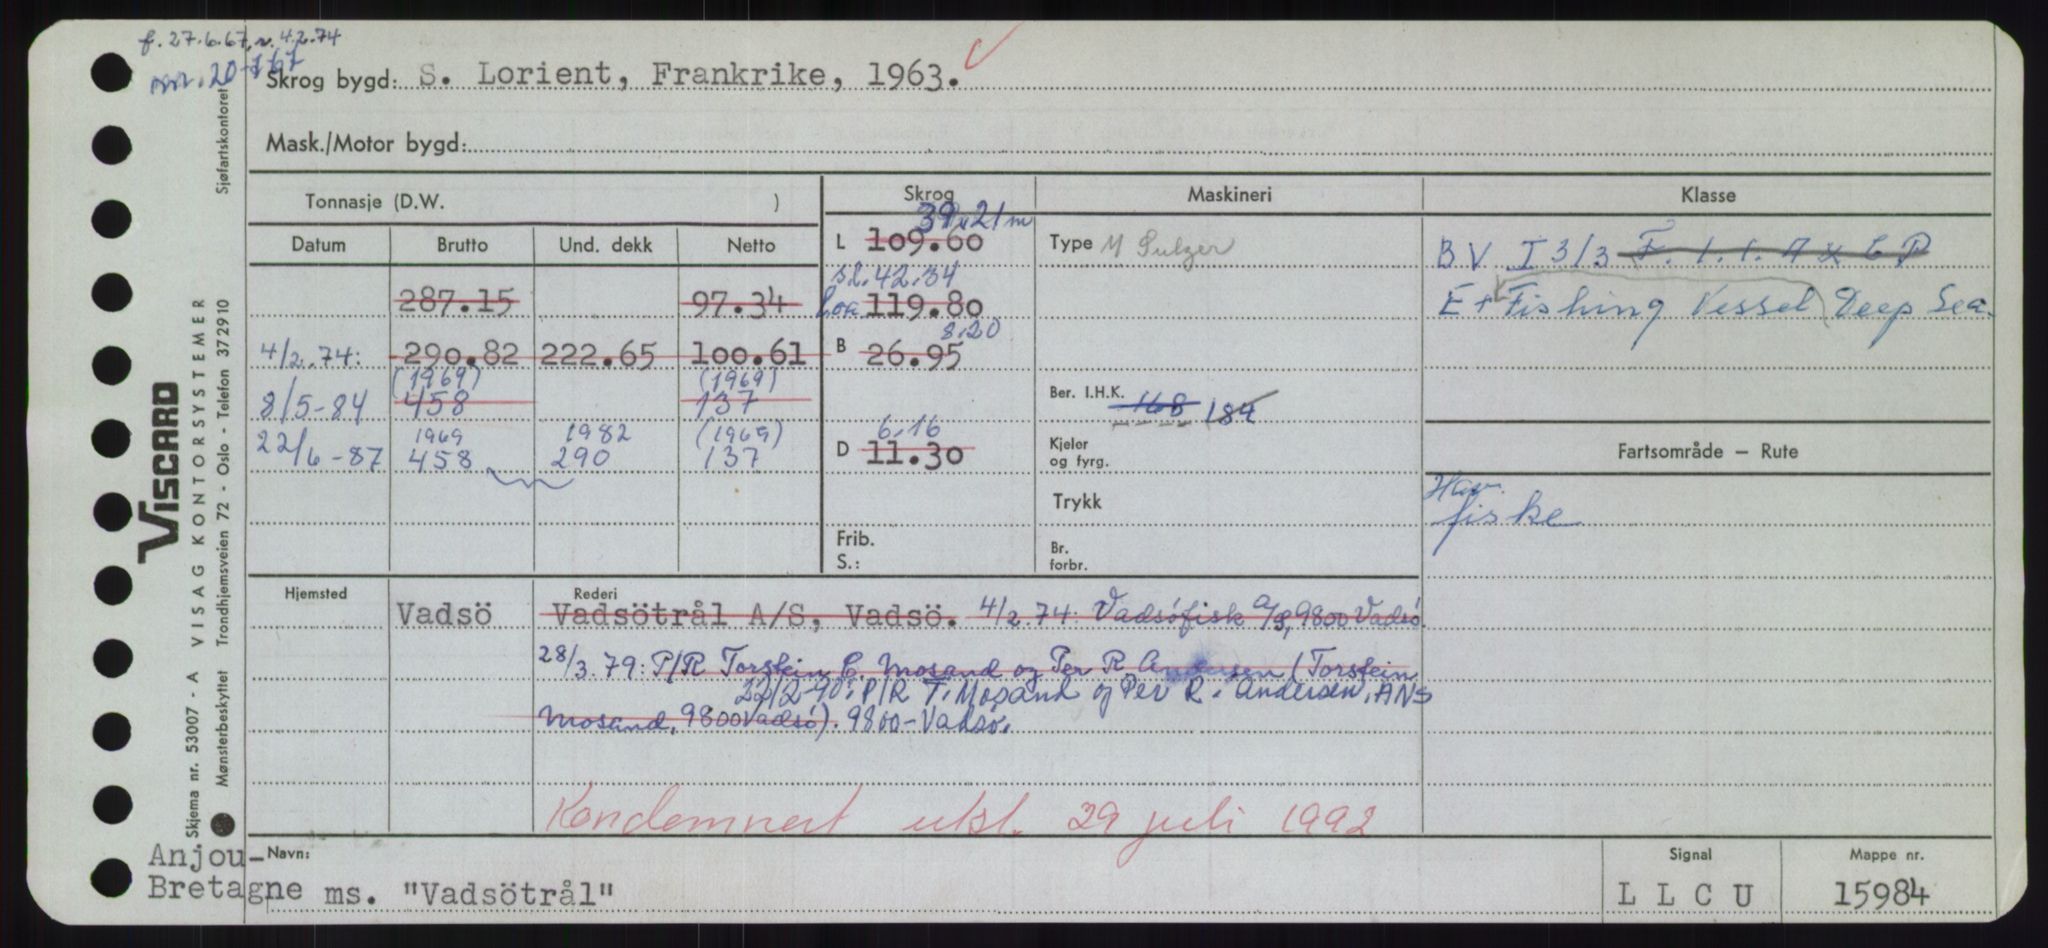 f. 27.6.67, r. 4.2.74
Skrog bygd: S. Lorient, Frankrike, 1963.
Mask./Motor bygd:
Tonnasje (D.W. )
Skrog
Maskineri
Klasse
Datum Brutto Und. dekk Netto
39.21 m
L 109.60
Type M Sulzer
BV I 3/3 F. 1.1. A & C P
287.15 97.34
sl. 42.34
Loa 119.80
E + Fishing Vessel Deep Sea.
4/2.74: 290.82 222.65 100.61
8.20
B 26.95
(1969) (1969)
8/5-84 458 137
Ber. I.H.K. 168 184
1969 1982 (1969)
22/6-87 458 290 137
6.16
D 11.30
Kjeler og fyrg.
Fartsområde – Rute
Trykk
Hav.
fiske
Frib.
S.:
Br.
forbr.
Hjemsted Vadsö
Rederi
Vadsötrål A/S, Vadsö. 4/2.74: Vadsöfisk A/S, 9800 Vadsö.
28/3.79: P/R Torstein C. Mosand og Per R Andersen (Torstein
22/2-90: P/R T. Mosand og Per R. Andersen, ANS
Mosand, 9800 Vadsö). 9800-Vadsö.
Kondemnert 29 juli 1992
Navn:
Anjou-
Bretagne ms. "Vadsötrål"
Signal
L L C U
Mappe nr.
15984
VISCARD
Skjema nr. 53007 - A VISAG KONTORSYSTEMER
Mønsterbeskyttet Trondhjemsveien 72 - Oslo - Telefon 372910 Sjøfartskontoret